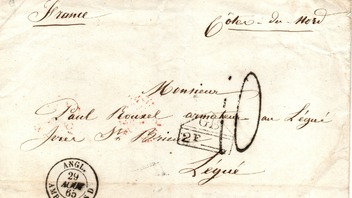 France
Côtes-du-Nord
Monsieur
Paul Rouxel armateur au Légué
St Brieuc
Légué
10
GB
2F
ANGL.
29
AOUT
65
AMB
D